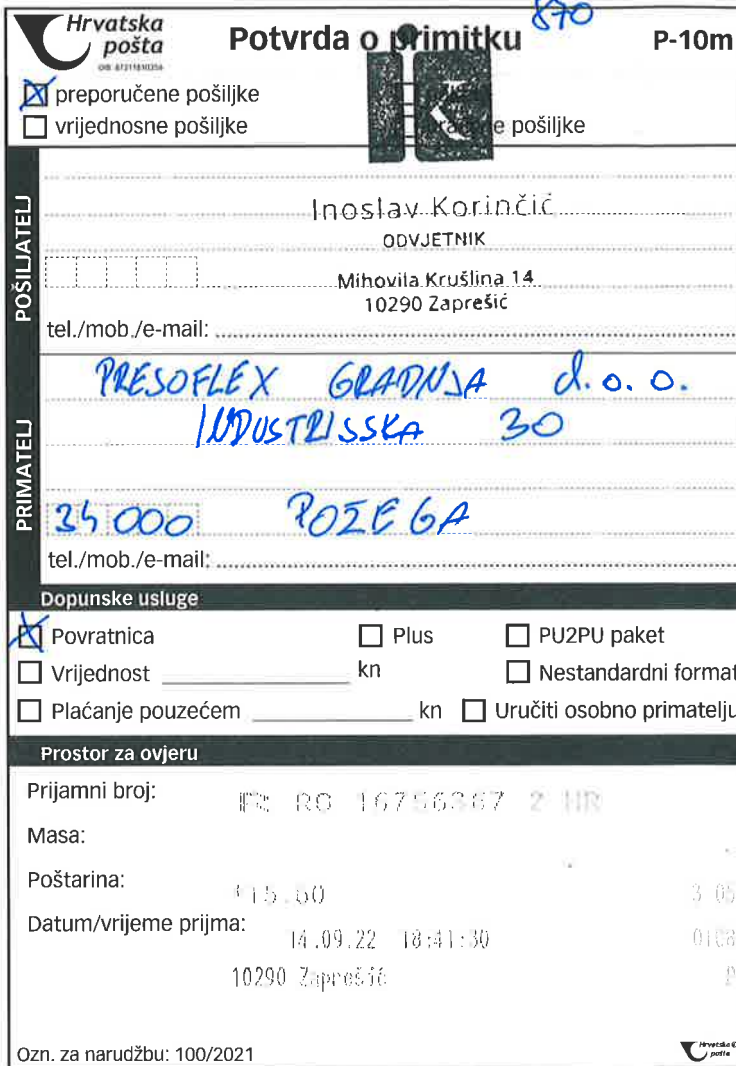 870
Hrvatska
pošta
Potvrda o primitku
P-10m
OIB: 87311810356
preporučene pošiljke
vrijednosne pošiljke
pošiljke
POŠILJATELJ
Inoslav Korinčić
ODVJETNIK
Mihovila Krušlina 14
10290 Zaprešić
tel./mob./e-mail:
PRIMATELJ
PRESOFLEX GRADNJA d.o.o.
INDUSTRISSKA 30
34000 POŽEGA
tel./mob./e-mail:
Dopunske usluge
Povratnica Plus PU2PU paket
Vrijednost kn Nestandardni format
Plaćanje pouzećem kn Uručiti osobno primatelju
Prostor za ovjeru
Prijamni broj: RO 16756367 2 HR
Masa:
Poštarina: 15.50
Datum/vrijeme prijma:
14.09.22 18:41:30
10290 Zaprešić
Ozn. za narudžbu: 100/2021
Hrvatska
pošta